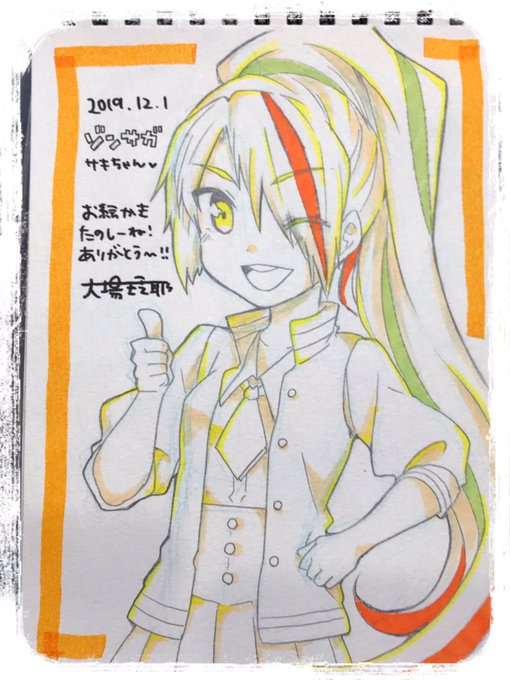 2019.12.1
ゾンサガ
サキちゃん♥
お絵かき
たのしーね!
ありがとう〜!!
大場